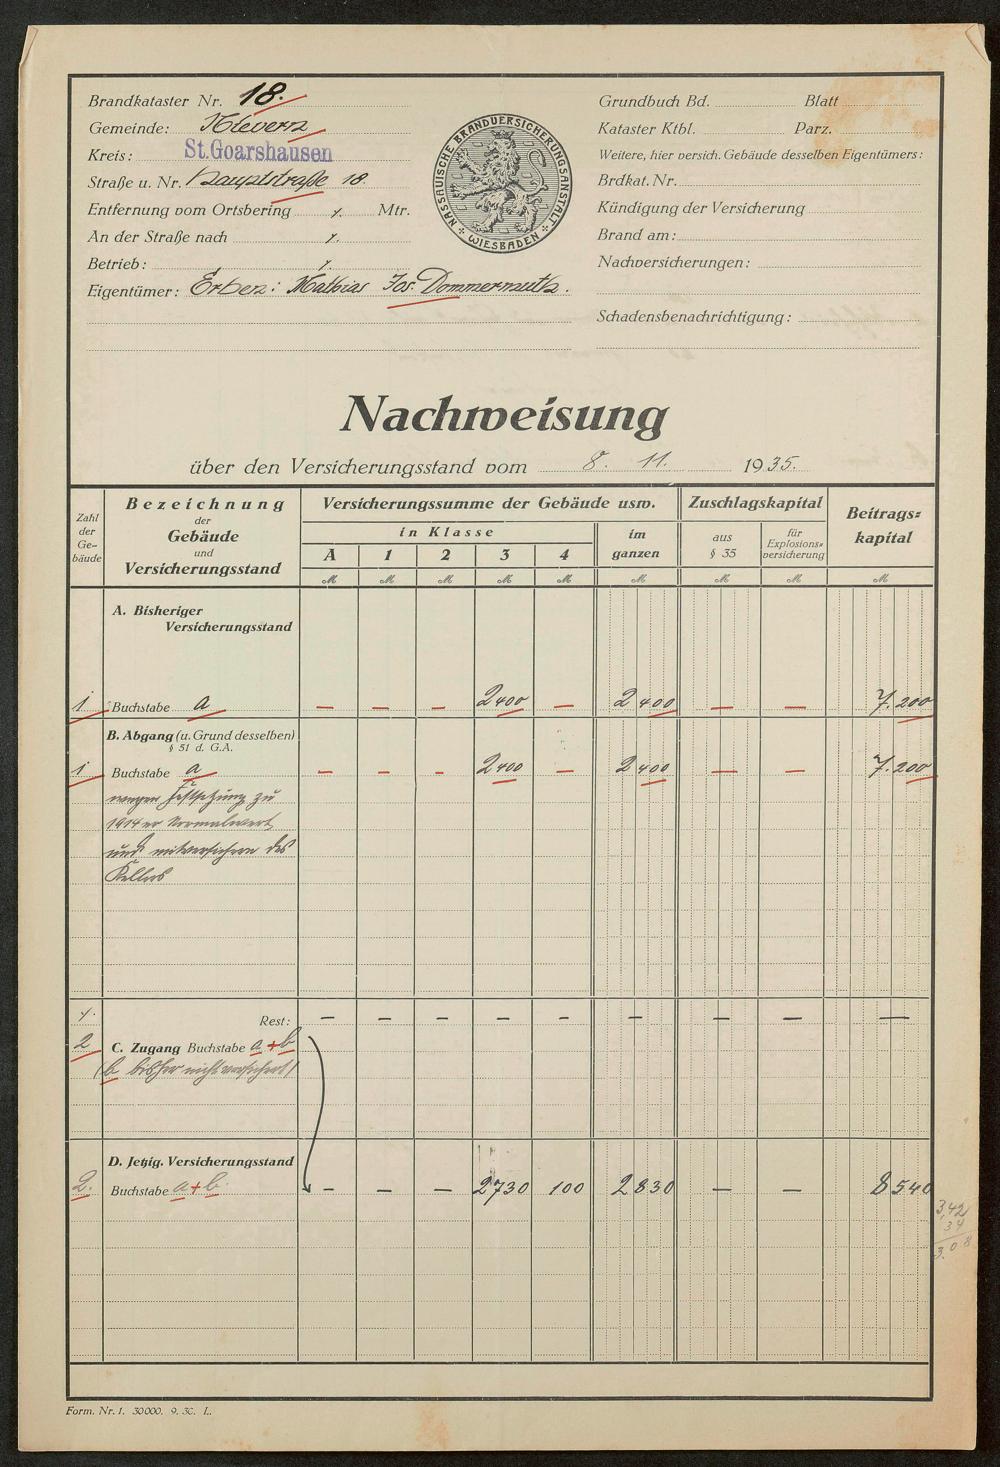 Brandkataster Nr. 18.
Gemeinde: Nievern
Kreis: St.Goarshausen
Straße u. Nr. Hauptstraße 18.
Entfernung vom Ortsbering ./. Mtr.
An der Straße nach ./.
Betrieb: ./.
Eigentümer: Erben: Mathias Jos. Dommermuth.
NASSAUISCHE BRANDVERSICHERUNGSANSTALT
WIESBADEN
Grundbuch Bd. Blatt
Kataster Ktbl. Parz.
Weitere, hier versich. Gebäude desselben Eigentümers:
Brdkat. Nr.
Kündigung der Versicherung
Brand am:
Nachversicherungen:
Schadensbenachrichtigung:
Nachweisung
über den Versicherungsstand vom 8. 11. 1935.
Zahl der Ge-bäude
Bezeichnung der Gebäude und Versicherungsstand
Versicherungssumme der Gebäude usw.
in Klasse
A 1 2 3 4
im ganzen
Zuschlagskapital
aus § 35
für Explosions-versicherung
Beitrags-kapital
M M M M M M M M M
A. Bisheriger
Versicherungsstand
1 Buchstabe a — — — 2400 — 2400 — — 7.200
B. Abgang (u. Grund desselben)
§ 51 d. G.A.
1 Buchstabe a — — — 2400 — 2400 — — 7.200
wegen Festsetzung zu
1914er Normalwert
und mitversichern des
Kellers
./. Rest: — — — — — — — — —
2 C. Zugang Buchstabe a + b
(b bisher nicht versichert)
D. Jetzig. Versicherungsstand
2. Buchstabe a + b. — — — 2730 100 2830 — — 8540
3,42
34
3.08
Form. Nr. 1. 30000. 9. 30. L.